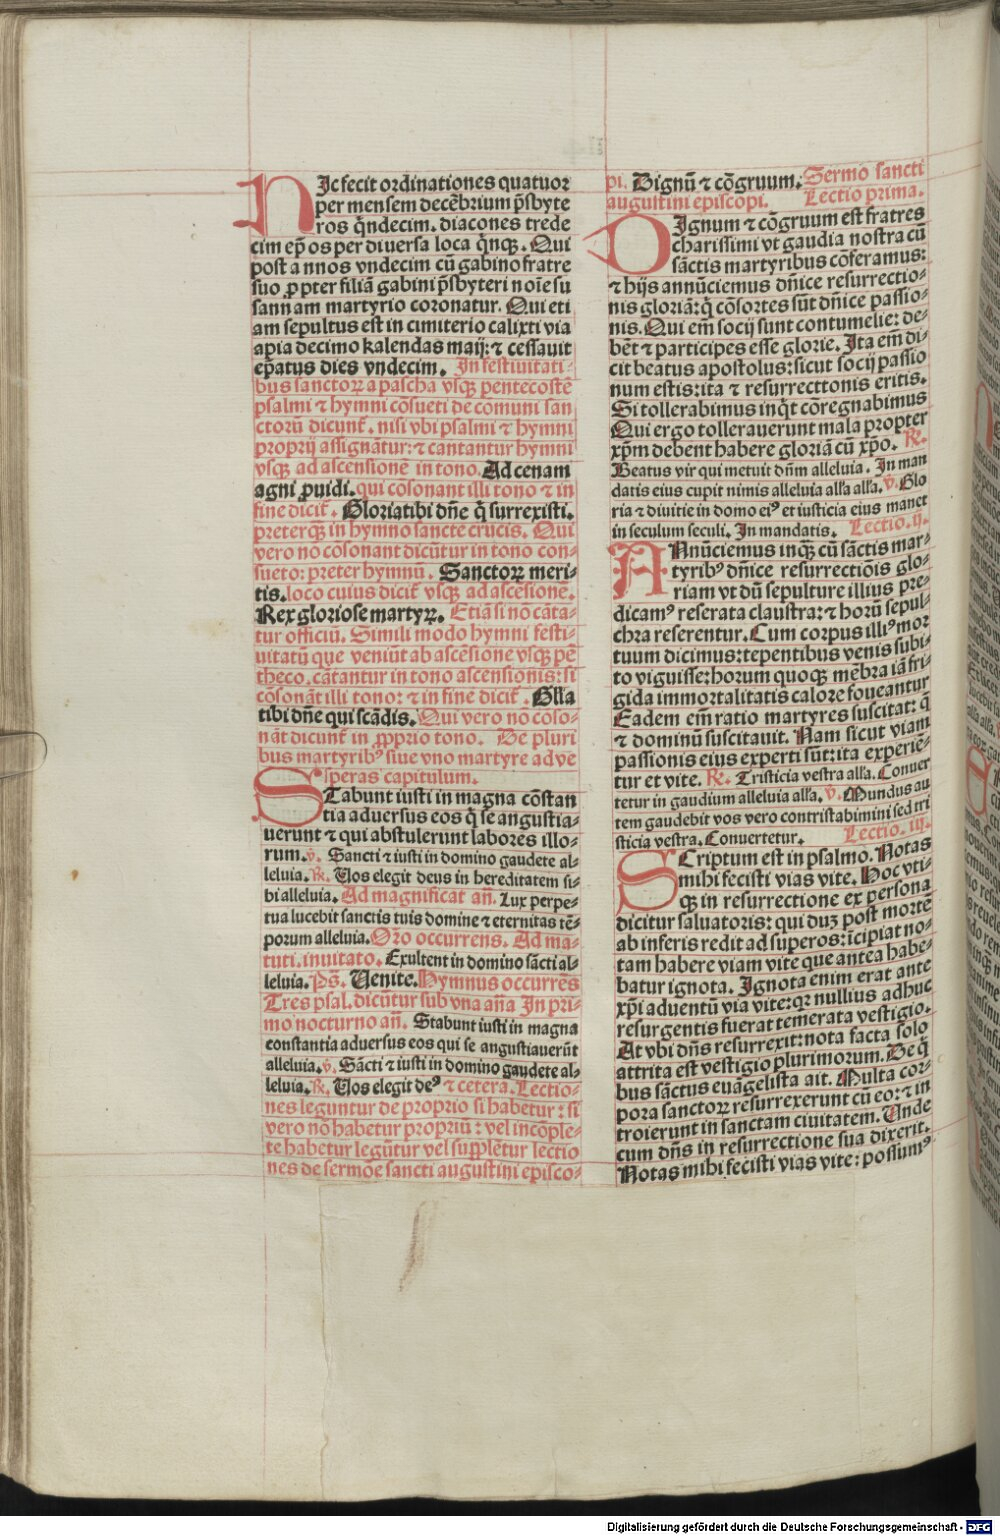 HIc fecit ordinationes quatuor
per mensem decēbrium p̄sbyte
ros q̄ndecim. diacones trede
cim ep̄os per diuersa loca q̄nqꝫ. Qui
post annos vndecim cū gabino fratre
suo ꝓpter filiā gabini p̄sbyteri noīe su
sannam martyrio coronatur. Qui eti
am sepultus est in cimiterio calixti via
apia decimo kalendas maij: ⁊ cessauit
ep̄atus dies vndecim. In festiuitati⸗
bus sanctoꝝ a pascha vsqꝫ pentecostē
psalmi ⁊ hymni cōsueti de comuni san
ctorū dicunt̄. nisi vbi psalmi ⁊ hymni
proprij assignātur: ⁊ cantantur hymni
vsqꝫ ad ascensionē in tono. Ad cenam
agni ꝓuidi. qui cōsonant illi tono ⁊ in
fine dicit̄. Gloria tibi dn̄e q̄ surrexisti.
preterqꝫ in hymno sancte crucis. Qui
vero nō cōsonant dicūtur in tono con⸗
sueto: preter hymnū. Sanctoꝝ meri⸗
tis. loco cuius dicit̄ vsqꝫ ad ascēsionē.
Rex gloriose martyꝝ. Etiā si nō cāta⸗
tur officiū. Simili modo hymni festi⸗
uitatū que veniūt ab ascēsione vsqꝫ pē
theco. cātantur in tono ascensionis: si
cōsonāt illi tono: ⁊ in fine dicit̄. Glīa
tibi dn̄e qui scādis. Qui vero nō cōso⸗
nāt dicunt̄ in ꝓprio tono. De pluri
bus martyribꝰ siue vno martyre ad ve
speras capitulum.
STabunt iusti in magna cōstan
tia aduersus eos q̄ se angustia⸗
uerunt ⁊ qui abstulerunt labores illo⸗
rum. ℣. Sancti ⁊ iusti in domino gaudete al⸗
leluia. ℟. Uos elegit deus in hereditatem si⸗
bi alleluia. Ad magnificat an̄. Lux perpe⸗
tua lucebit sanctis tuis domine ⁊ eternitas tē⸗
porum alleluia. Or̄o occurrens. Ad ma⸗
tuti. inuitato. Exultent in domino sācti al⸗
leluia. Ps̄. Uenite. Hymnus occurrēs
Tres psal. dicūtur sub vna an̄a In pri⸗
mo nocturno an̄. Stabunt iusti in magna
constantia aduersus eos qui se angustiauerūt
alleluia. ℣. Sācti ⁊ iusti in domino gaudete al⸗
leluia. ℟. Uos elegit deꝰ ⁊ cetera. Lectio⸗
nes leguntur de proprio si habetur: si
vero nō habetur propriū: vel incōple⸗
te habetur legūtur vel supplētur lectio
nes de sermōe sancti augustini episco⸗
pi. Dignū ⁊ cōgruum. Sermo sancti
augustini episcopi. Lectio prima.
DIgnum ⁊ cōgruum est fratres
charissimi vt gaudia nostra cū
sāctis martyribus cōferamus:
⁊ hijs annūciemus dn̄ice resurrectio⸗
nis gloriā: q̄ cōsortes sūt dn̄ice passio⸗
nis. Qui em̄ socij sunt contumelie: de⸗
bēt ⁊ participes esse glorie. Ita em̄ di⸗
cit beatus apostolus: sicut socij passio
num estis: ita ⁊ resurrecttonis eritis.
Si tollerabimus inq̄t cōregnabimus
Qui ergo tollerauerunt mala propter
xp̄m debent habere gloriā cū xp̄o. ℟.
Beatus vir qui metuit dn̄m alleluia. In man
datis eius cupit nimis alleluia alla alla. ℣. Glo
ria ⁊ diuitie in domo eiꝰ et iusticia eius manet
in seculum seculi. In mandatis. Lectio. ij.
ANnūciemus inqꝫ cū sāctis mar⸗
tyribꝰ dn̄ice resurrectiōis glo⸗
riam vt dū sepulture illius pre⸗
dicamꝰ reserata claustra: ⁊ horū sepul⸗
chra reserentur. Cum corpus illiꝰ mor
tuum dicimus: tepentibus venis subi⸗
to viguisse: horum quoqꝫ mēbra iā fri⸗
gida immortalitatis calore foueantur
Eadem em̄ ratio martyres suscitat: q̄
⁊ dominū suscitauit. Nam sicut viam
passionis eius experti sūt: ita experiē⸗
tur et vite. ℟. Tristicia vestra alla. Conuer
tetur in gaudium alleluia alla. ℣. Mundus au
tem gaudebit vos vero contristabimini sed tri
sticia vestra. Conuertetur. Lectio. iij.
SCriptum est in psalmo. Notas
mihi fecisti vias vite. Hoc vti⸗
qꝫ in resurrectione ex persona
dicitur saluatoris: qui duꝫ post mortē
ab inferis redit ad superos: īcipiat no⸗
tam habere viam vite que antea habe⸗
batur ignota. Ignota enim erat ante
xp̄i aduentū via vite: qꝛ nullius adhuc
resurgentis fuerat temerata vestigio.
At vbi dn̄s resurrexit: nota facta solo
attrita est vestigio plurimorum. De q̄
bus sāctus euāgelista ait. Multa cor⸗
pora sanctoꝝ resurrexerunt cū eo: ⁊ in
troierunt in sanctam ciuitatem. Unde
cum dn̄s in resurrectione sua dixerit.
Notas mihi fecisti vias vite: possumꝰ
Digitalisierung gefördert durch die Deutsche Forschungsgemeinschaft - DFG